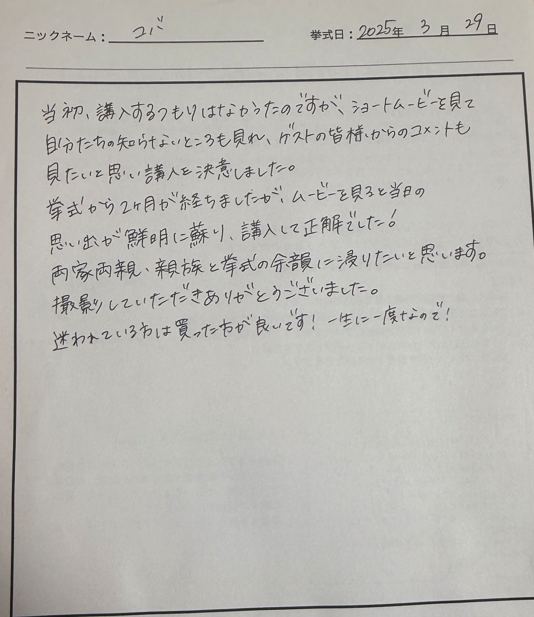 ニックネーム： コバ 挙式日： 2025年 3月 29日
当初、講入するつもりはなかったのですが、ショートムービーを見て
自分たちの知らないところも見れ、ゲストの皆様からのコメントも
見たいと思い講入を決意しました。
挙式から2ヶ月が経ちましたが、ムービーを見ると当日の
思い出が鮮明に蘇り、講入して正解でした！
両家両親、親族と挙式の余韻に浸りたいと思います。
撮影していただきありがとうございました。
迷われている方は買った方が良いです！一生に一度なので！